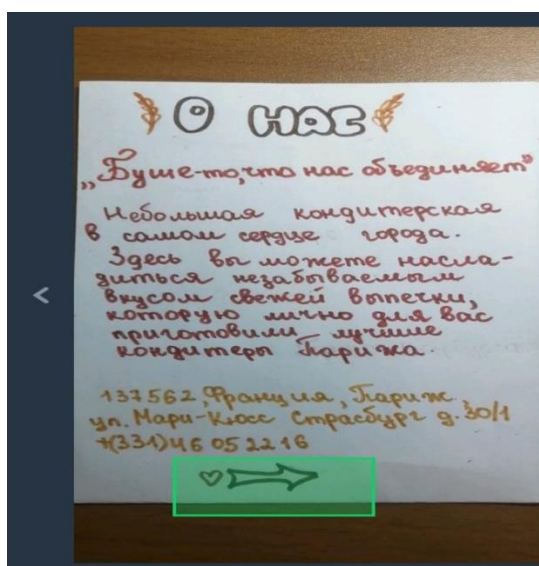 О НАС
„Буше-то,что нас объединяет"
Небольшая кондитерская
в самом сердце города.
Здесь вы можете насла-
диться незабываемым
вкусом свежей выпечки,
которую лично для вас
приготовили лучшие
кондитеры Парижа.
137562, Франция, Париж
ул. Мари-Кюсс Страсбург д. 30/1
+(331)46 05 22 16